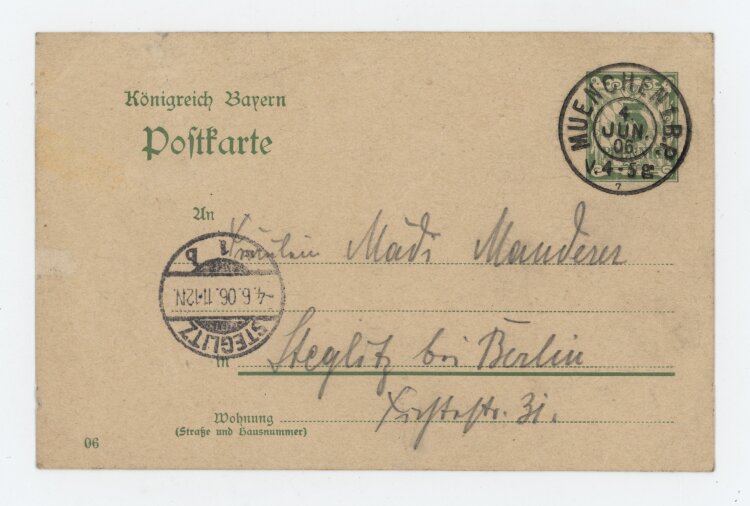 Königreich Bayern
Postkarte
MUENCHEN 1. B.P.
4.
JUN.
06.
V. 4-5
7
An Fräulein Madi Manderer
1 b
-4.6.06.11-12N.
STEGLITZ
in Steglitz bei Berlin
Wohnung 31.
(Straße und Hausnummer)
06